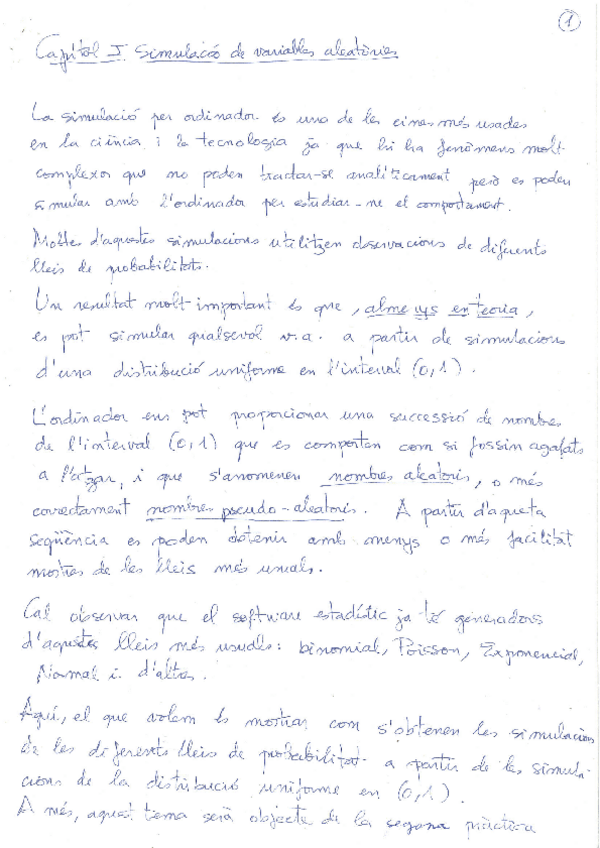 1
Capítol I Simulació de variables aleatòries
La simulació per ordinador és una de les eines més usades
en la ciència i la tecnologia ja que hi ha fenòmens molt
complexos que no poden tractar-se analíticament però es poden
simular amb l'ordinador per estudiar-ne el comportament.
Moltes d'aquestes simulacions utilitzen observacions de diferents
lleis de probabilitats.
Un resultat molt important és que, almenys en teoria,
es pot simular qualsevol v.a. a partir de simulacions
d'una distribució uniforme en l'interval (0,1).
L'ordinador ens pot proporcionar una successió de nombres
de l'interval (0,1) que es comporten com si fossin agafats
a l'atzar, i que s'anomenen nombres aleatoris, o més
correctament nombres pseudo-aleatoris. A partir d'aqueta
seqüència es poden obtenir amb menys o més facilitat
mostres de les lleis més usuals.
Cal observar que el software estadístic ja té generadors
d'aquestes lleis més usuals: binomial, Poisson, Exponencial,
Normal i d'altres.
Aquí, el que volem és mostrar com s'obtenen les simulacions
de les diferents lleis de probabilitat a partir de les simula-
cions de la distribució uniforme en (0,1).
A més, aquest tema serà objecte de la segona pràctica